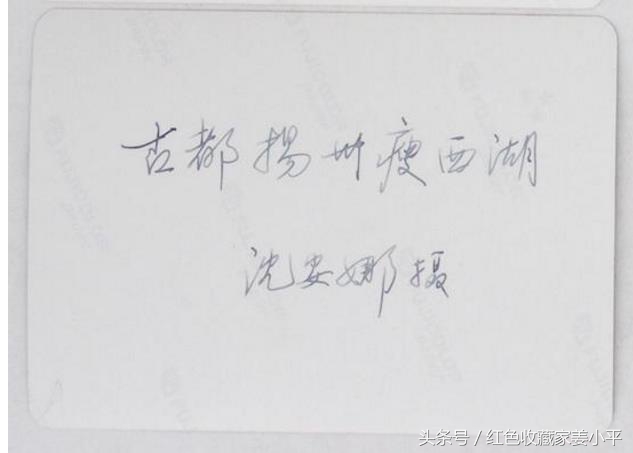 古都揚州瘦西湖
沈安娜摄
头条号／红色收藏家姜小平